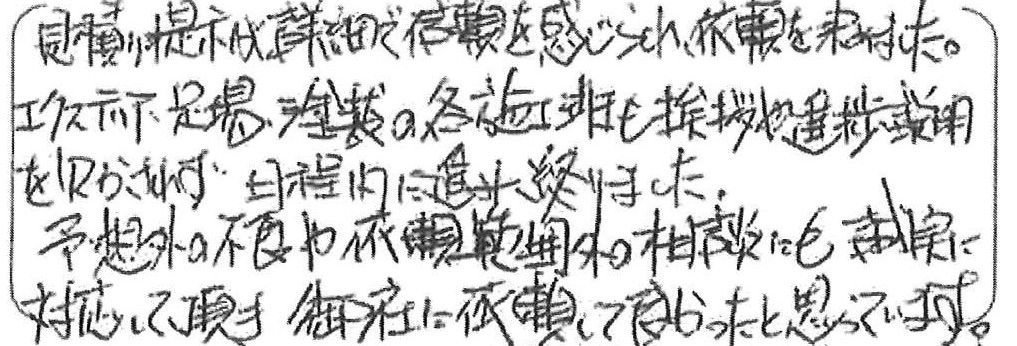 見積り提示が詳細で信頼を感じられ、依頼を決めました。
足場、塗装の各施工班も挨拶や進捗説明
を欠かさず 日程内に進み、終りました。
予想外の不良や依頼範囲外の相談にも誠実に
対応して頂き 御社に依頼して良かったと思っています。